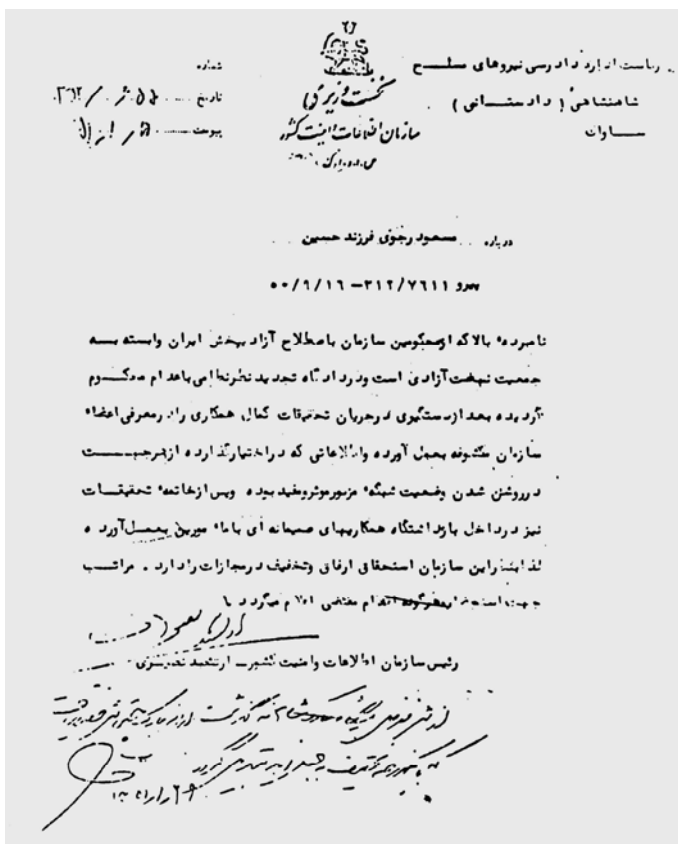 ریاست اداره دادرسی نیروهای مسلح
شاهنشاهی (دادستانی)
ساواک
نخست وزیری
سازمان اطلاعات و امنیت کشور
شماره
تاریخ
پیوست
درباره مسعود رجوی فرزند حسین
پیرو ۳۱۲/۷۶۱۱ – ۵۰/۹/۱۶
نامبرده بالا که از محکومین سازمان باصطلاح آزادیبخش ایران وابسته به
جمعیت نهضت آزادی است و در دادگاه تجدید نظر نظامی باعدام محکوم
گردیده بعد از دستگیری در جریان تحقیقات کمال همکاری را در معرفی اعضاء
سازمان مکشوفه بعمل آورده و اطلاعاتی که در اختیار گذارده از هر جهت
در روشن شدن وضعیت شبکه مزبور موثر و مفید بوده و پس از خاتمه تحقیقات
نیز در داخل بازداشتگاه همکاریهای صمیمانه ای با مامورین بعمل آورده
لذا بنظر این سازمان استحقاق ارفاق و تخفیف در مجازات را دارد . مراتب
جهت استحضار و هرگونه اقدام مقتضی اعلام میگردد
رئیس سازمان اطلاعات و امنیت کشور – ارتشبد نصیری